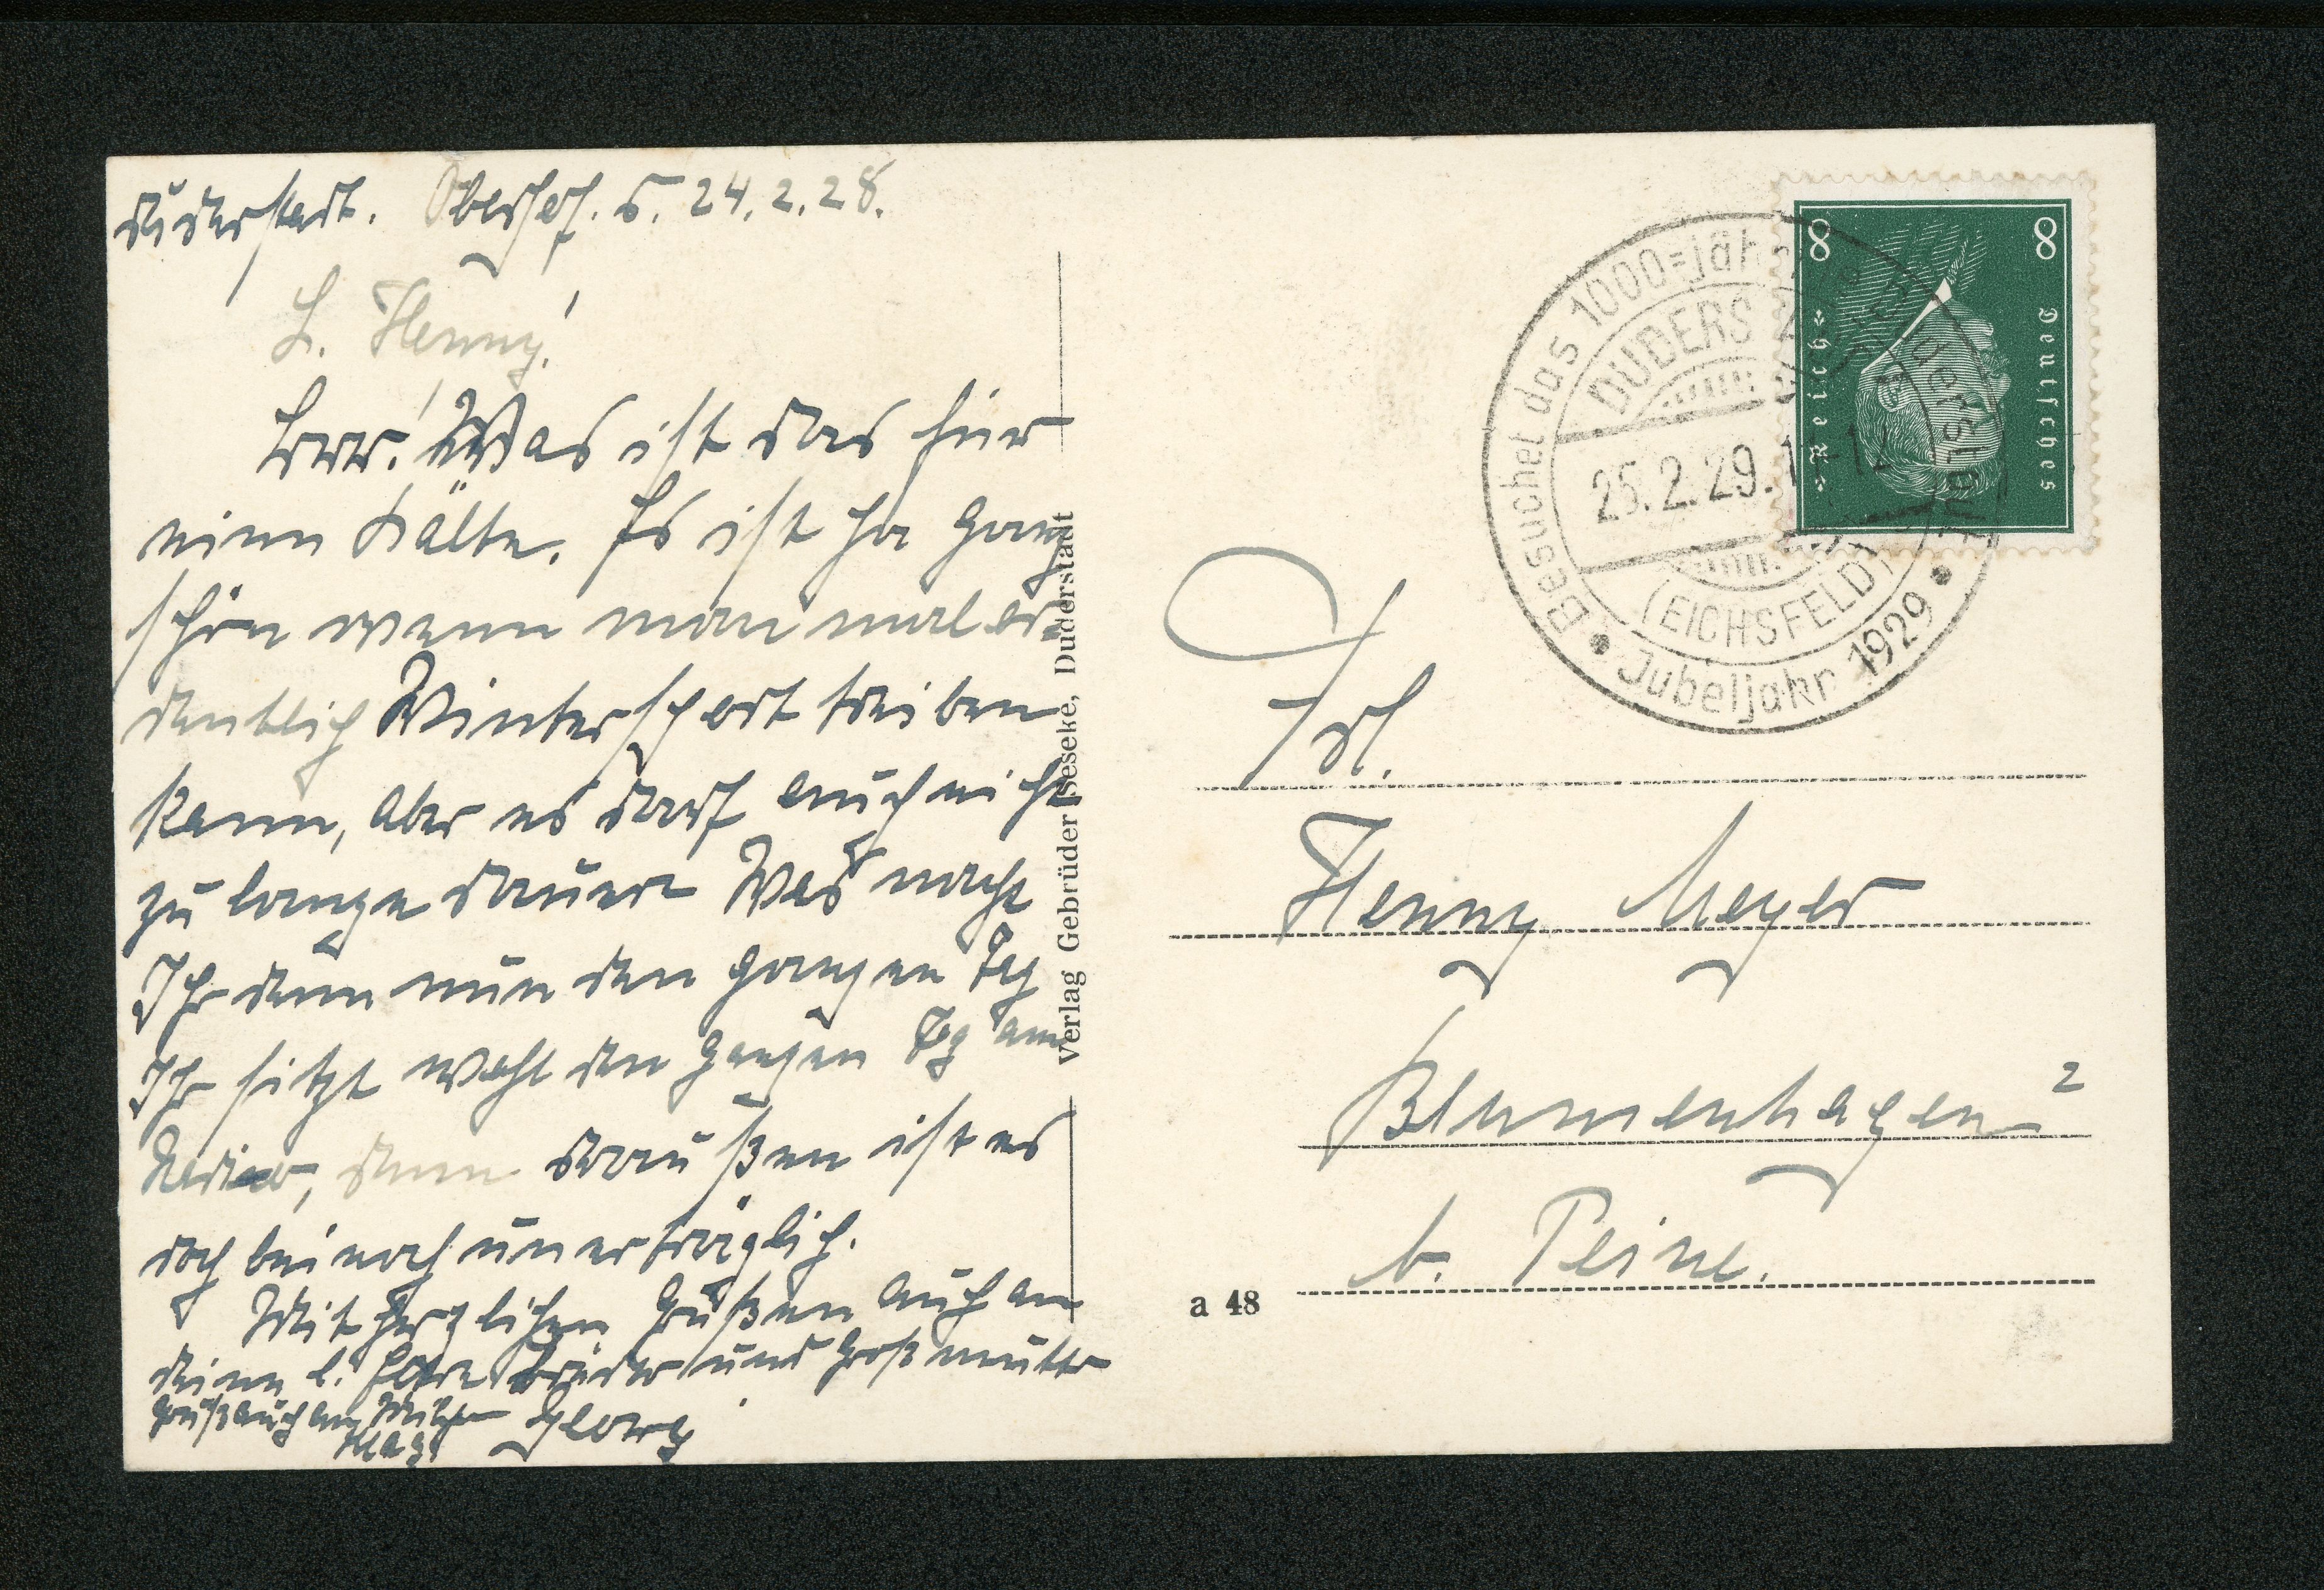 Duderstadt. Oberhof. d. 24.2.28.
L. Henny!
Brrr! Was ist das für
eine Kälte. Es ist ja ganz
schön wenn man mal or=
dentlich Wintersport treiben
kann, aber es darf auch nicht
zu lange dauern Was macht
Ihr denn nun den ganzen Tag
Ihr sitzt wohl den ganzen Tag am
Radio, denn draußen ist es
doch bei noch unerträglich.
Mit herzlichen Grüßen auch an
deine l. Eltern Brüder und Großmutter
Gruß auch an
Georg
Verlag Gebrüder Beseke, Duderstadt
Besuchet das 1000=jährige
DUDERSTADT
25.2.29.
(EICHSFELD)
Jubeljahr 1929
8 8
Deutsches
Reich
Frl.
Henny Meyer
Blumenhagen 2
b. Peine.
a 48